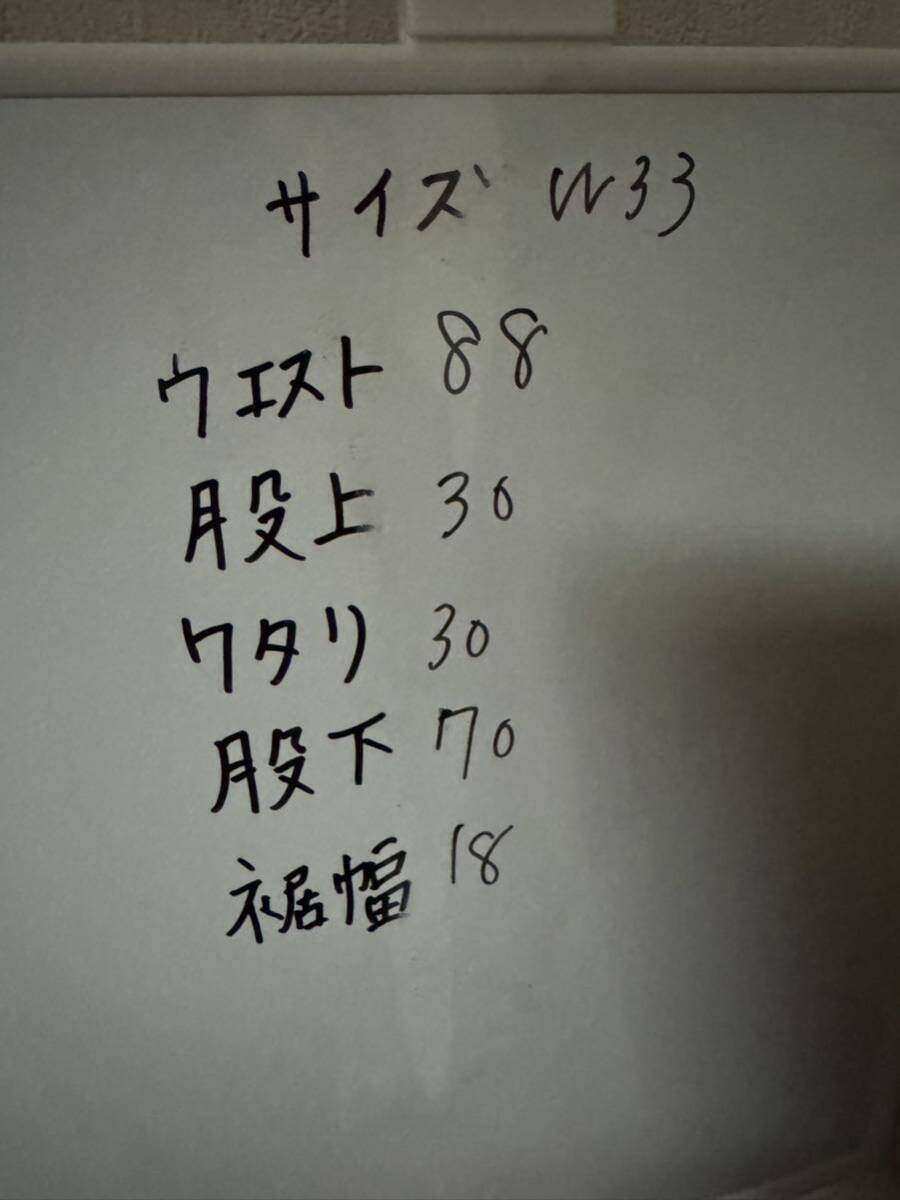 サイズ W33
ウエスト 88
股上 30
ワタリ 30
股下 70
裾幅 18